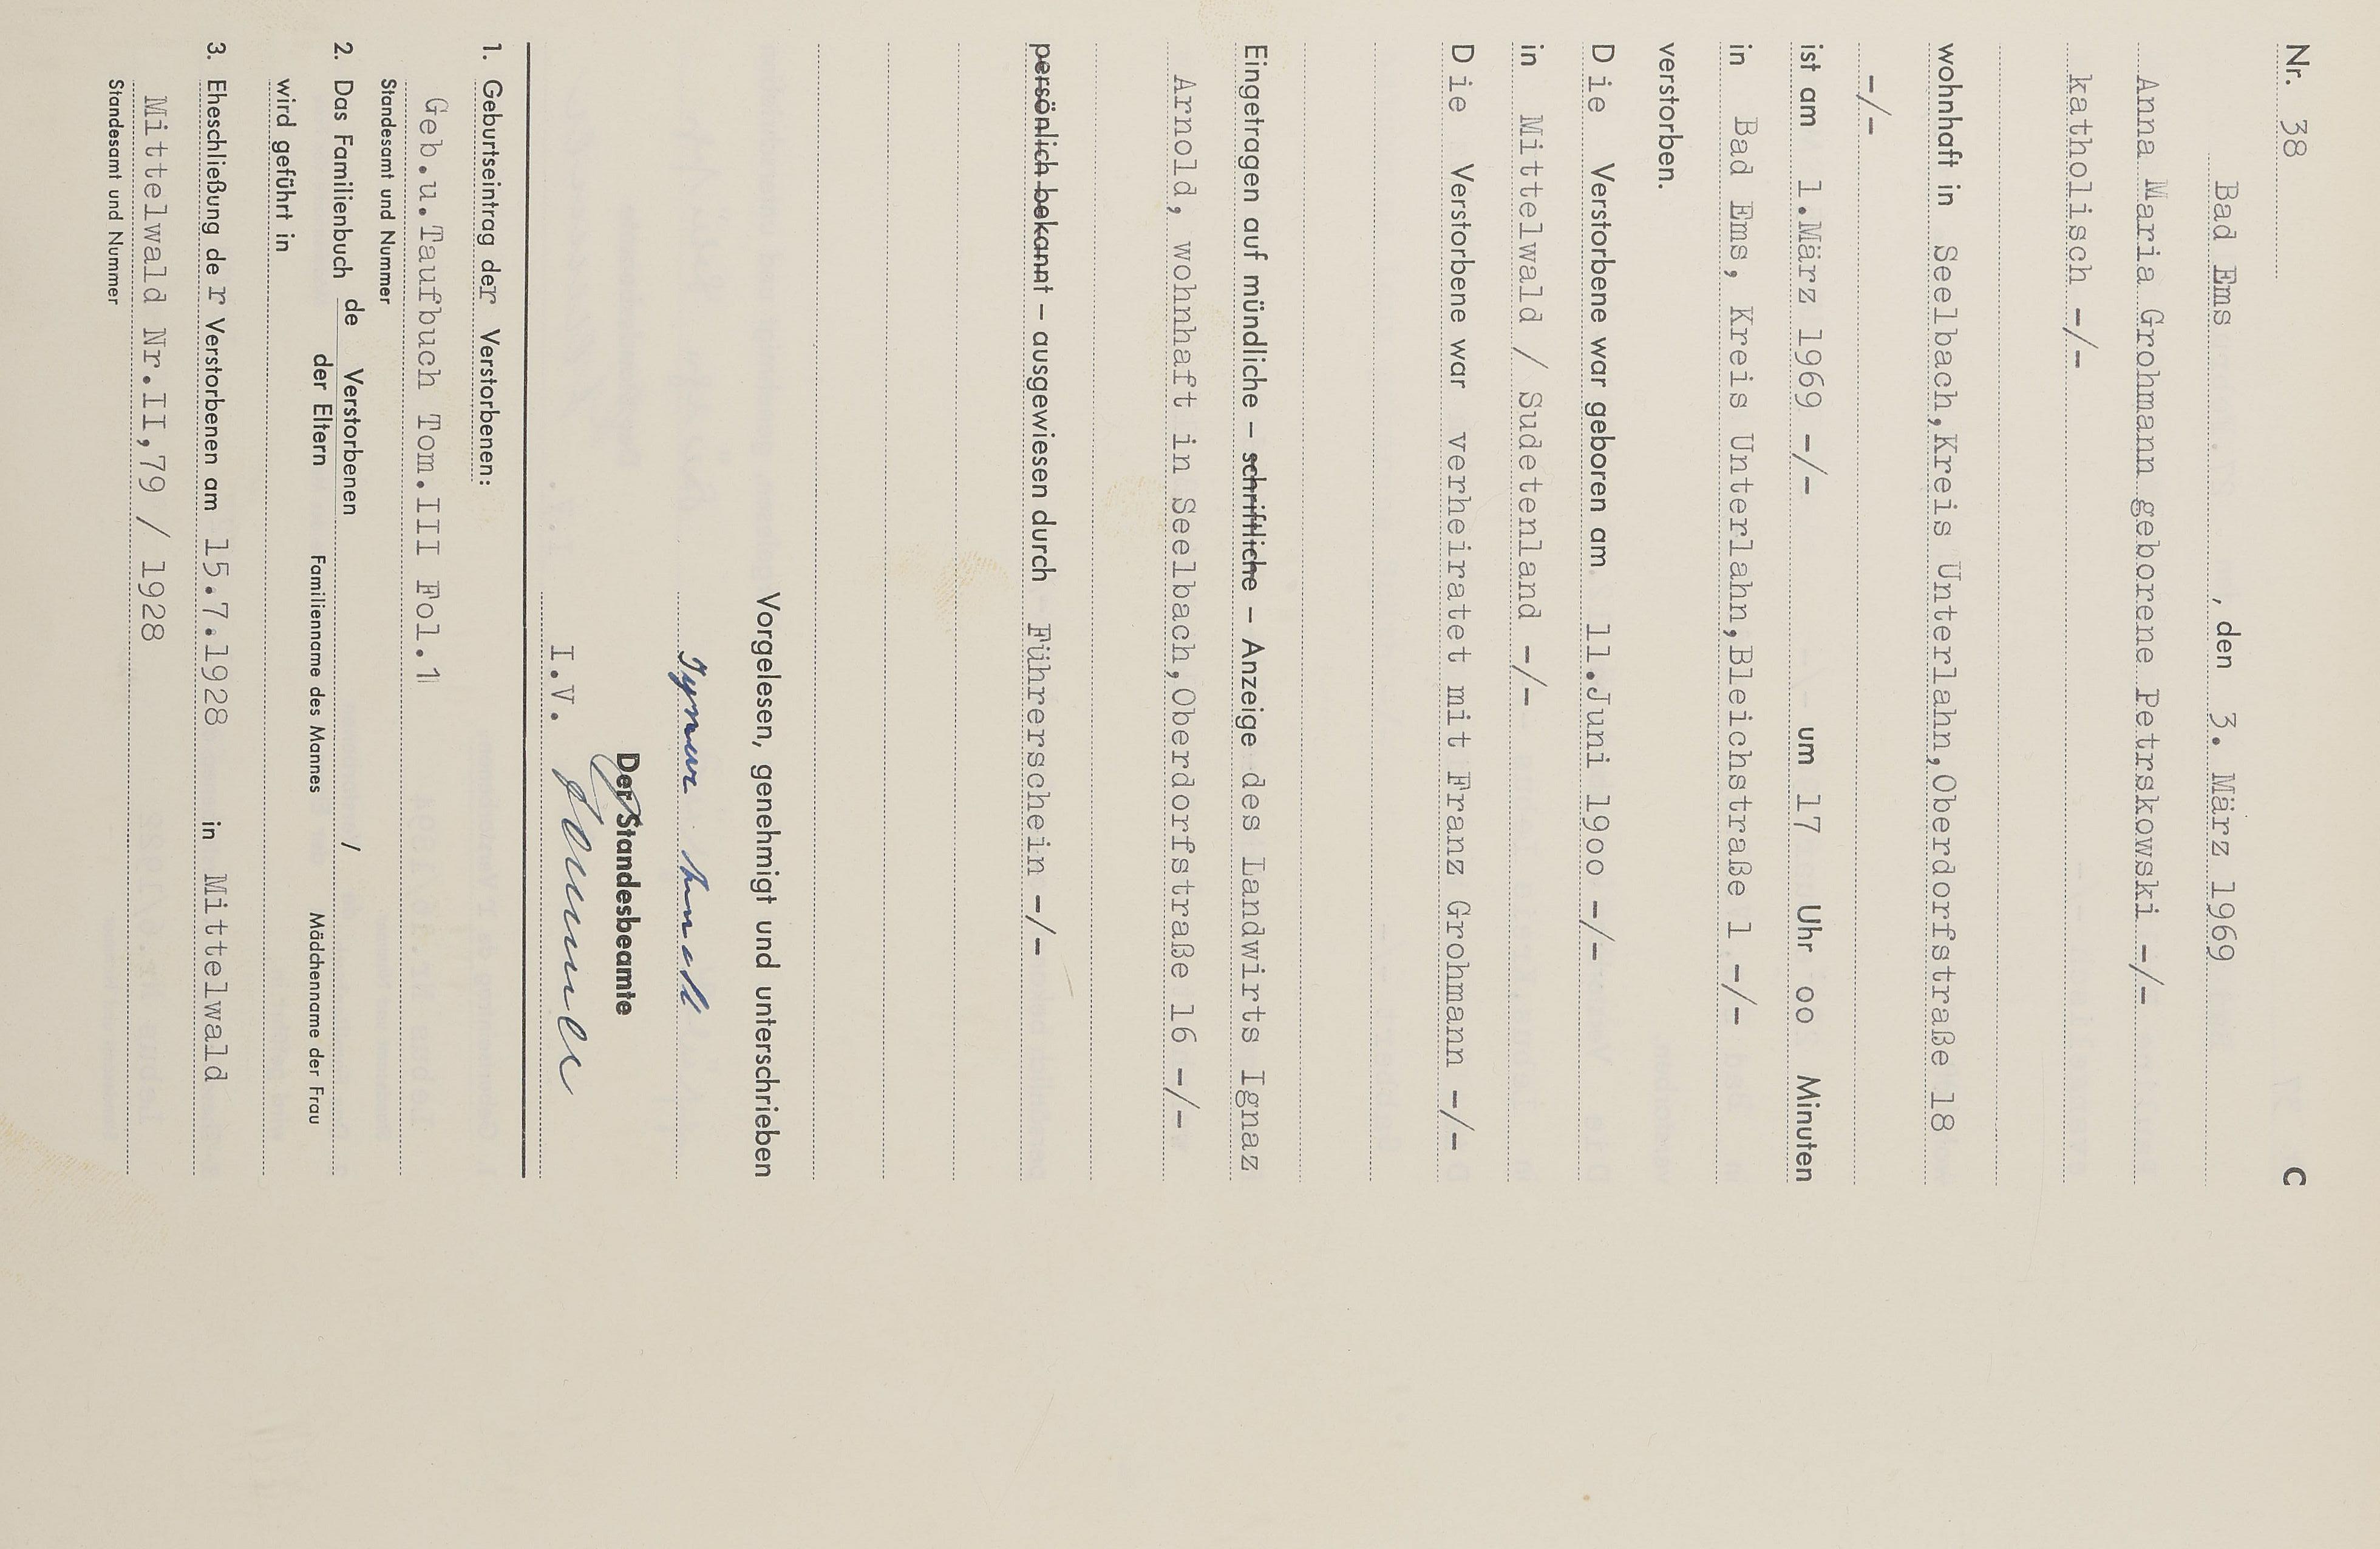 Nr. 38 C
Bad Ems , den 3. März 1969
Anna Maria Grohmann geborene Petrskowski -/-
katholisch -/-
wohnhaft in Seelbach,Kreis Unterlahn,Oberdorfstraße 18
-/-
ist am 1.März 1969 -/- um 17 Uhr oo Minuten
in Bad Ems, Kreis Unterlahn,Bleichstraße 1 -/-
verstorben.
Die Verstorbene war geboren am 11.Juni 19oo -/-
in Mittelwald / Sudetenland -/-
Die Verstorbene war verheiratet mit Franz Grohmann -/-
Eingetragen auf mündliche – schriftliche – Anzeige des Landwirts Ignaz
Arnold, wohnhaft in Seelbach,Oberdorfstraße 16 -/-
persönlich bekannt – ausgewiesen durch Führerschein -/-
Vorgelesen, genehmigt und unterschrieben
Ignaz Arnold
Der Standesbeamte
I.V.
1. Geburtseintrag der Verstorbenen:
Geb.u.Taufbuch Tom.III Fol.1
Standesamt und Nummer
2. Das Familienbuch de Verstorbenen /
der Eltern Familienname des Mannes Mädchenname der Frau
wird geführt in
3. Eheschließung der Verstorbenen am 15.7.1928 in Mittelwald
Mittelwald Nr.II,79 / 1928
Standesamt und Nummer